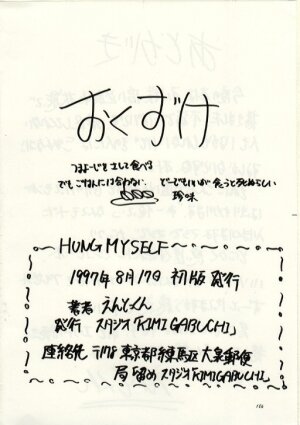 おくずけ
つまよーじをさして食べる
でもごはんには合わない。
どーでもいいが 食うと死ぬらしい
珍味
HUNG MYSELF
1997年8月17日 初版発行
著者 えんどっくん
発行 スタジオ「KIMIGABUCHI」
連絡先 〒178 東京都練馬区大泉郵便
局留め スタジオ「KIMIGABUCHI」